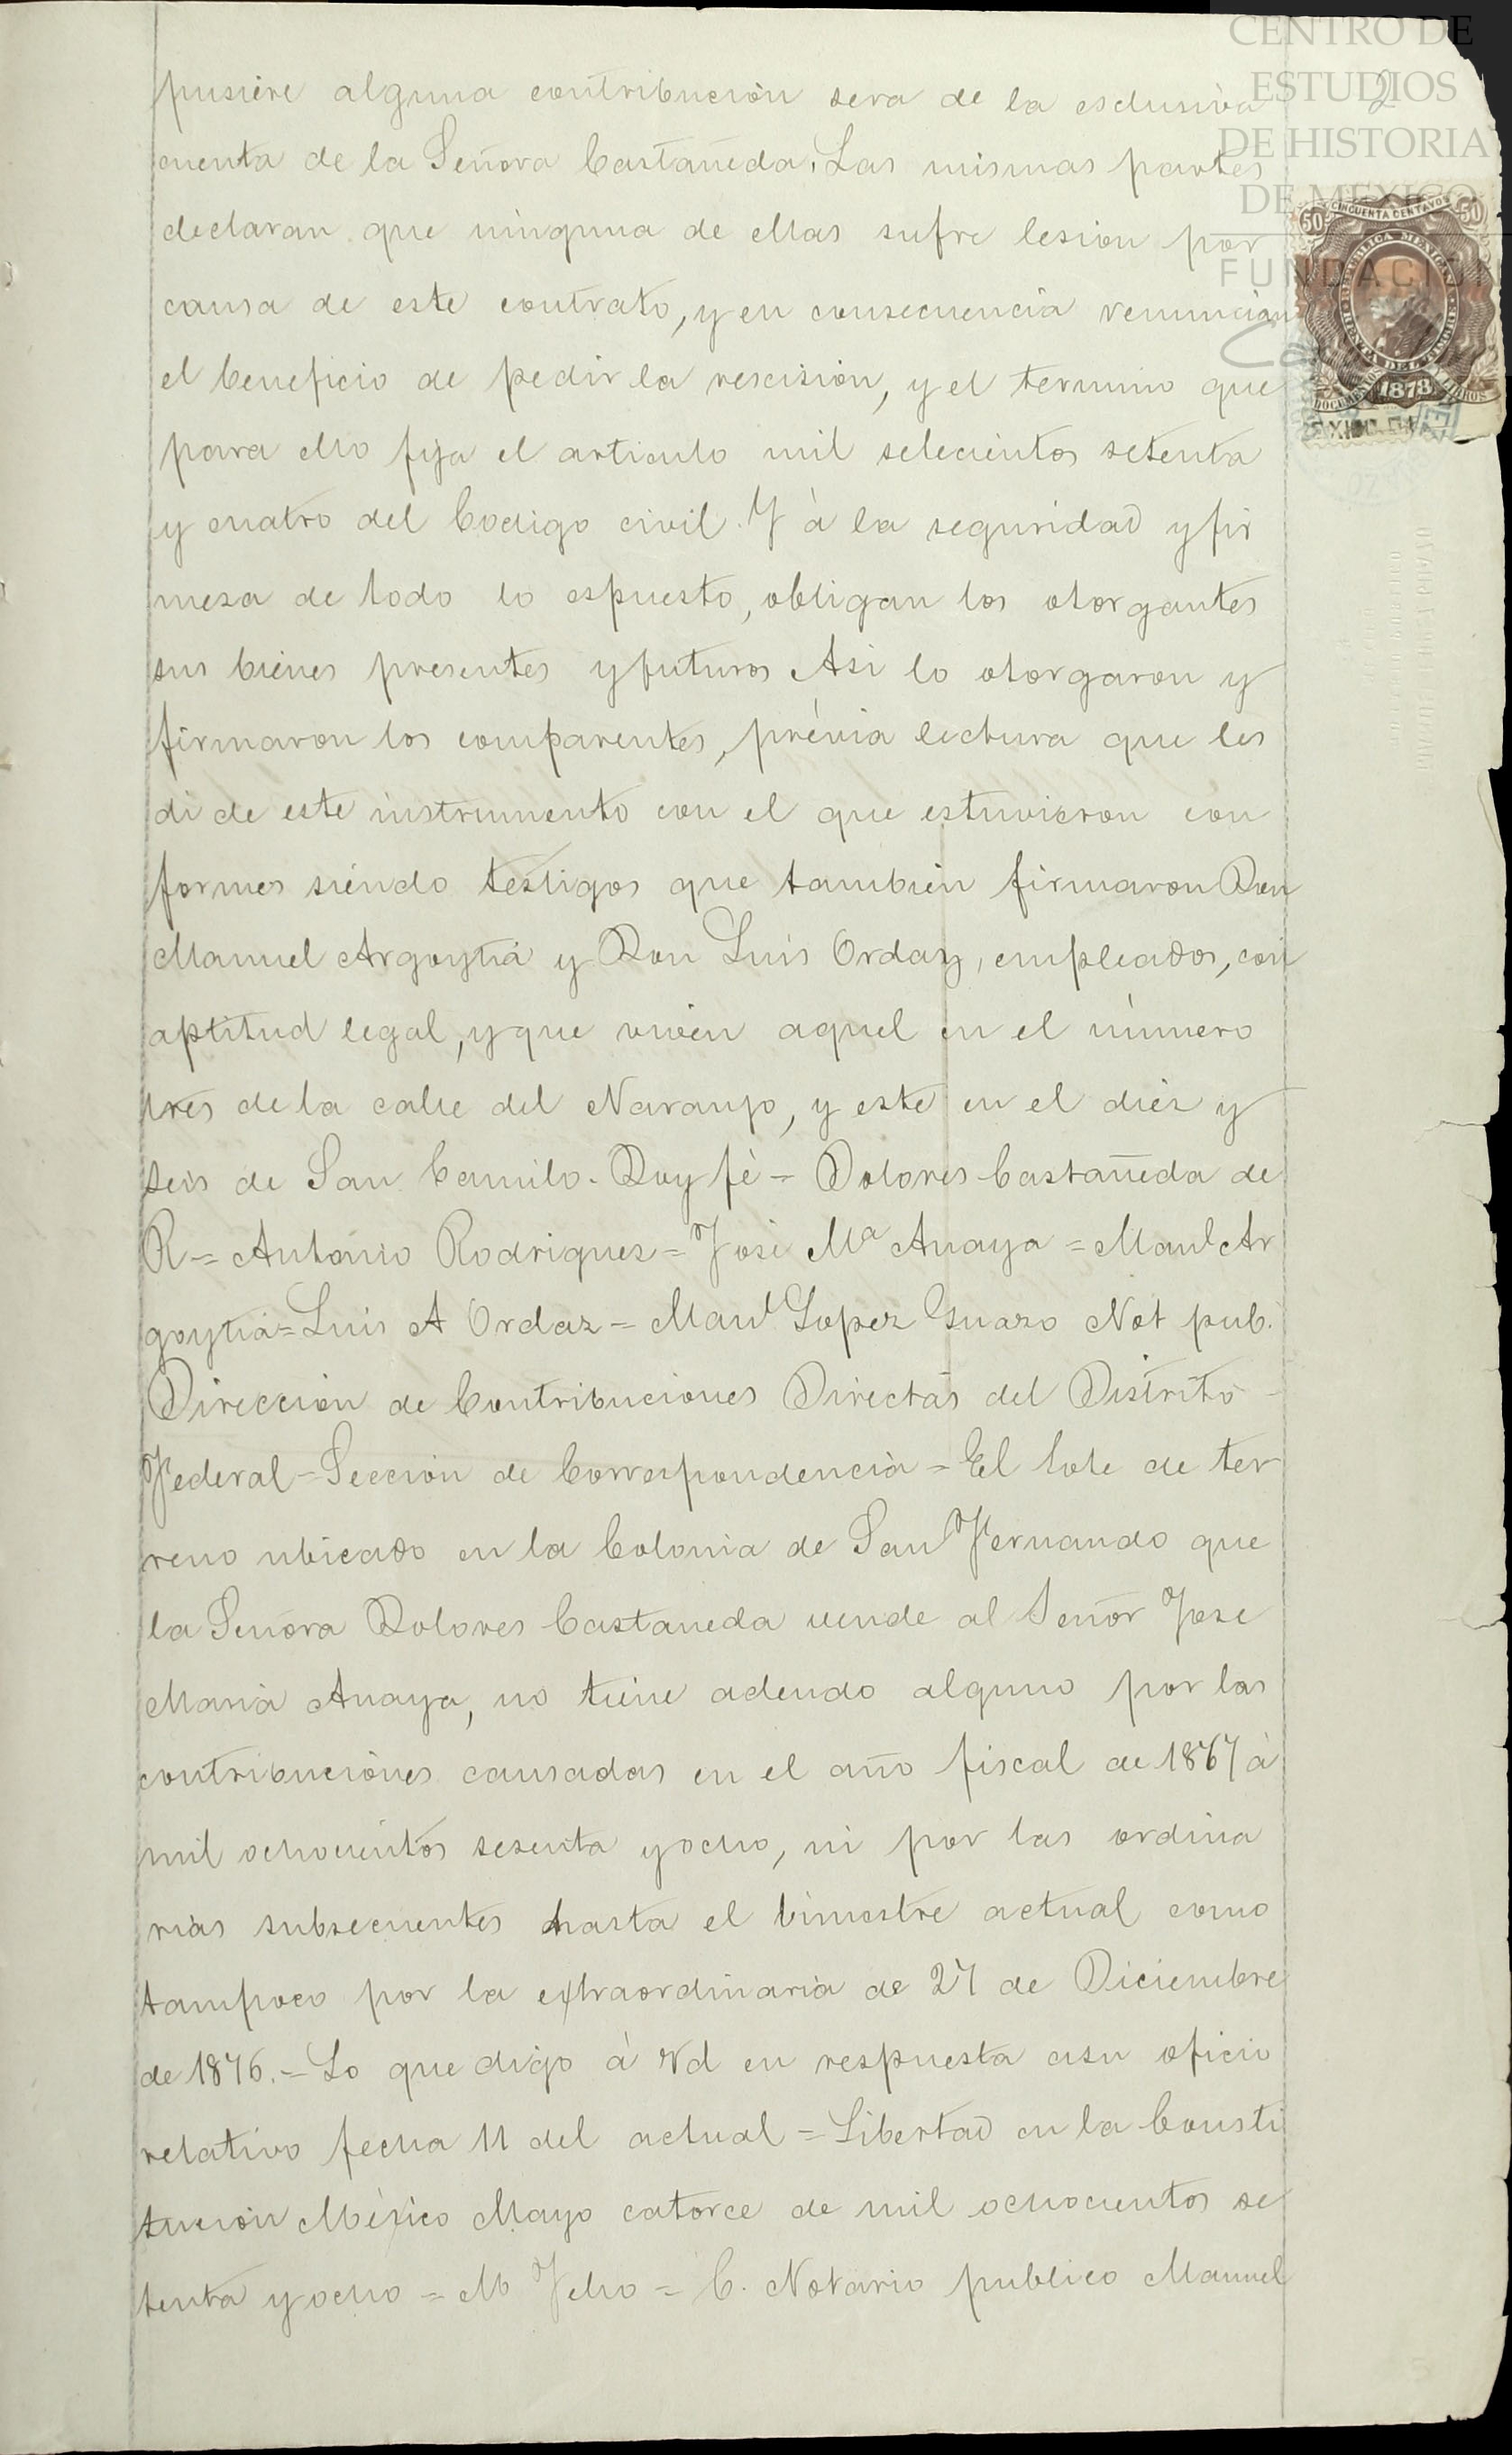 CENTRO DE
ESTUDIOS
DE HISTORIA
DE MEXICO
FUNDACIÓN
2
50 CINCUENTA CENTAVOS 50
REPUBLICA MEXICANA
RENTA DEL TIMBRE
DOCUMENTOS Y LIBROS
1878
pusiere alguna contribución sera de la esclusiva
cuenta de la Señora Castañeda. Las mismas partes
declaran que ninguna de ellas sufre lesion por
causa de este contrato, y en consecuencia renuncian
el beneficio de pedir la rescision, y el termino que
para ello fija el articulo mil setecientos setenta
y cuatro del Codigo civil. Y à la seguridad y fir
meza de todo lo espuesto, obligan los otorgantes
sus bienes presentes y futuros Asi lo otorgaron y
firmaron los comparentes, prévia lectura que les
di de este instrumento con el que estuvieron con
formes siendo testigos que tambien firmaron Don
Manuel Argoytia y Don Luis Ordaz, empleados, con
aptitud legal, y que viven aquel en el número
tres de la calle del Naranjo, y este en el diez y
seis de San Camilo. Doy fé = Dolores Castañeda de
R = Antonio Rodriguez = José Ma Anaya = Manl Ar
goytia = Luis A Ordaz = Manl Lopez Guazo Not pub.
Direccion de Contribuciones Directas del Distrito
Federal = Seccion de Correspondencia = El lote de ter
reno ubicado en la Colonia de San Fernando que
la Señora Dolores Castaneda vende al Señor Jose
Maria Anaya, no tiene adeudo alguno por las
contribuciones causadas en el año fiscal de 1867 á
mil ochocientos sesenta y ocho, ni por las ordina
rias subsecuentes hasta el bimestre actual como
tampoco por la extraordinaria de 27 de Diciembre
de 1876. = Lo que digo á Vd en respuesta asu oficio
relativo fecha 11 del actual = Libertad en la Consti
tucion México Mayo catorce de mil ochocientos se
tenta y ocho = M = C. Notario publico Manuel